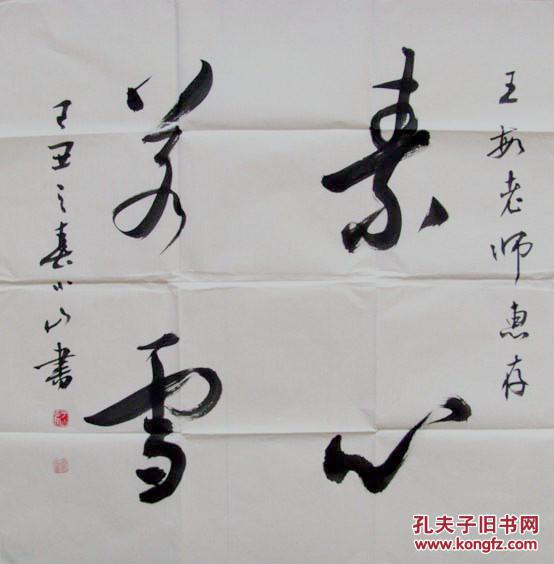 王老师惠存
素心
若雪
丑之春小山书
孔夫子旧书网
www.kongfz.com